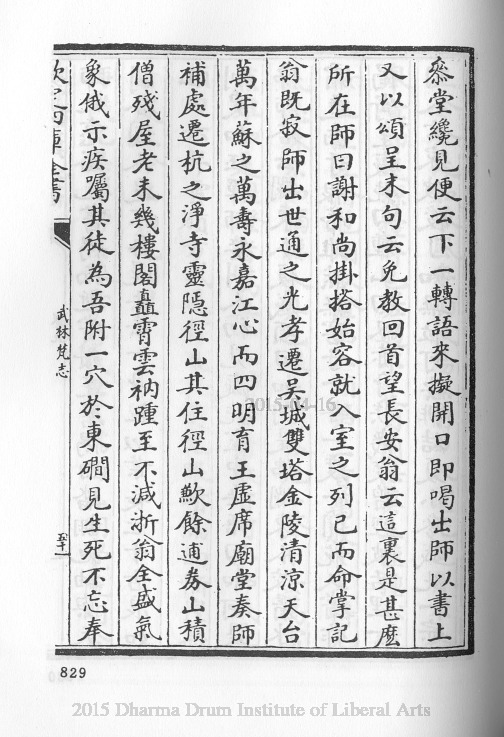 叅堂纔見便云下一轉語來擬開口即喝出師以書上
又以頌呈末句云免教回首望長安翁云這裏是甚麽
所在師曰謝和尚掛搭始容就入室之列已而命掌記
翁既寂師出世通之光孝遷吳城雙塔金陵清涼天台
萬年蘇之萬壽永嘉江心而四明育王虛席廟堂奏師
補處遷杭之淨寺靈隠徑山其住徑山歉餘逋券山積
僧殘屋老未幾樓閣矗霄雲衲踵至不減浙翁全盛氣
象俄示疾囑其徒為吾附一穴於東磵見生死不忘奉
欽定四庫全書
武林梵志
五十一
829
2015-04-16
2015 Dharma Drum Institute of Liberal Arts